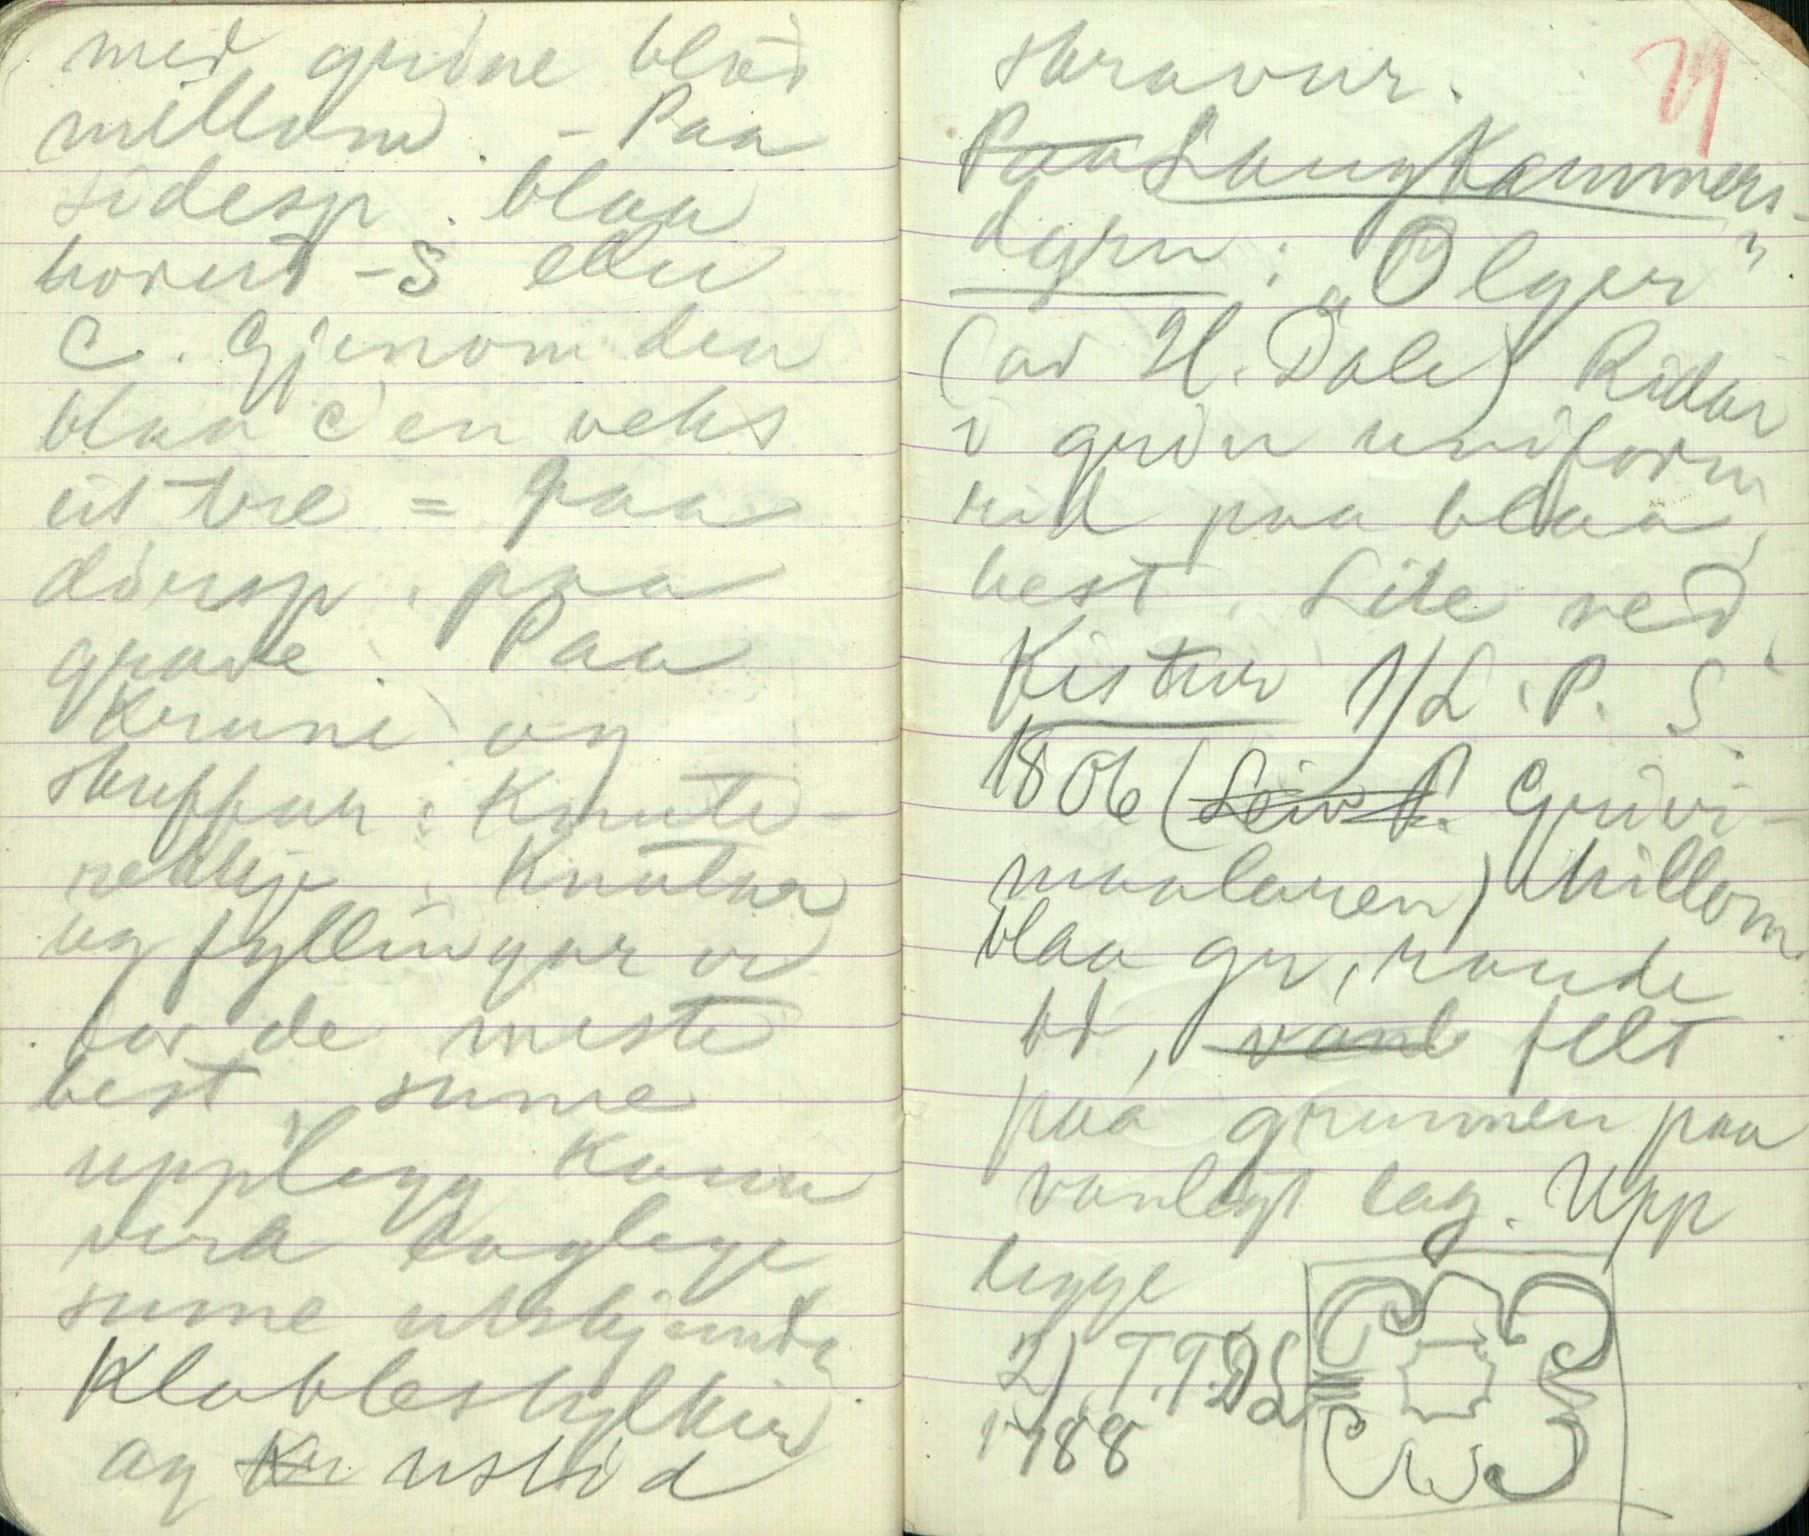 med grøne blad
millom. - Paa
sidesp. blaa
horut - S eller
C. Gjenom den
blaa C en veks
eit tre = paa
dørsp. paa
grøve. Paa
krune og
skuffur: Knute-
rekkje. Knutar
og fyllingar er
for de meste
best, sume
upplegg kann
vera laglege
sume utskjemde
Klableskylkier
og Kr uskød
skravur.
79
Paa Laug Kammers-
dyrn: "Olger"
(av H. Dale) Ridar
i grøn uniform
rid paa blaa
hest. Lite ned.
Kistur 1/ L. P. S.
1806 (Leiv P. Grøvi-
maalaren) Millom
blaa gr, raude
bd, vanl felt
paa grunnen paa
vanlegt lag. Upp
legge
2). T.T.D.S
1788